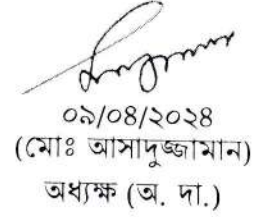 ০৯/০৪/২০২৪
(মোঃ আসাদুজ্জামান)
অধ্যক্ষ (অ. দা.)